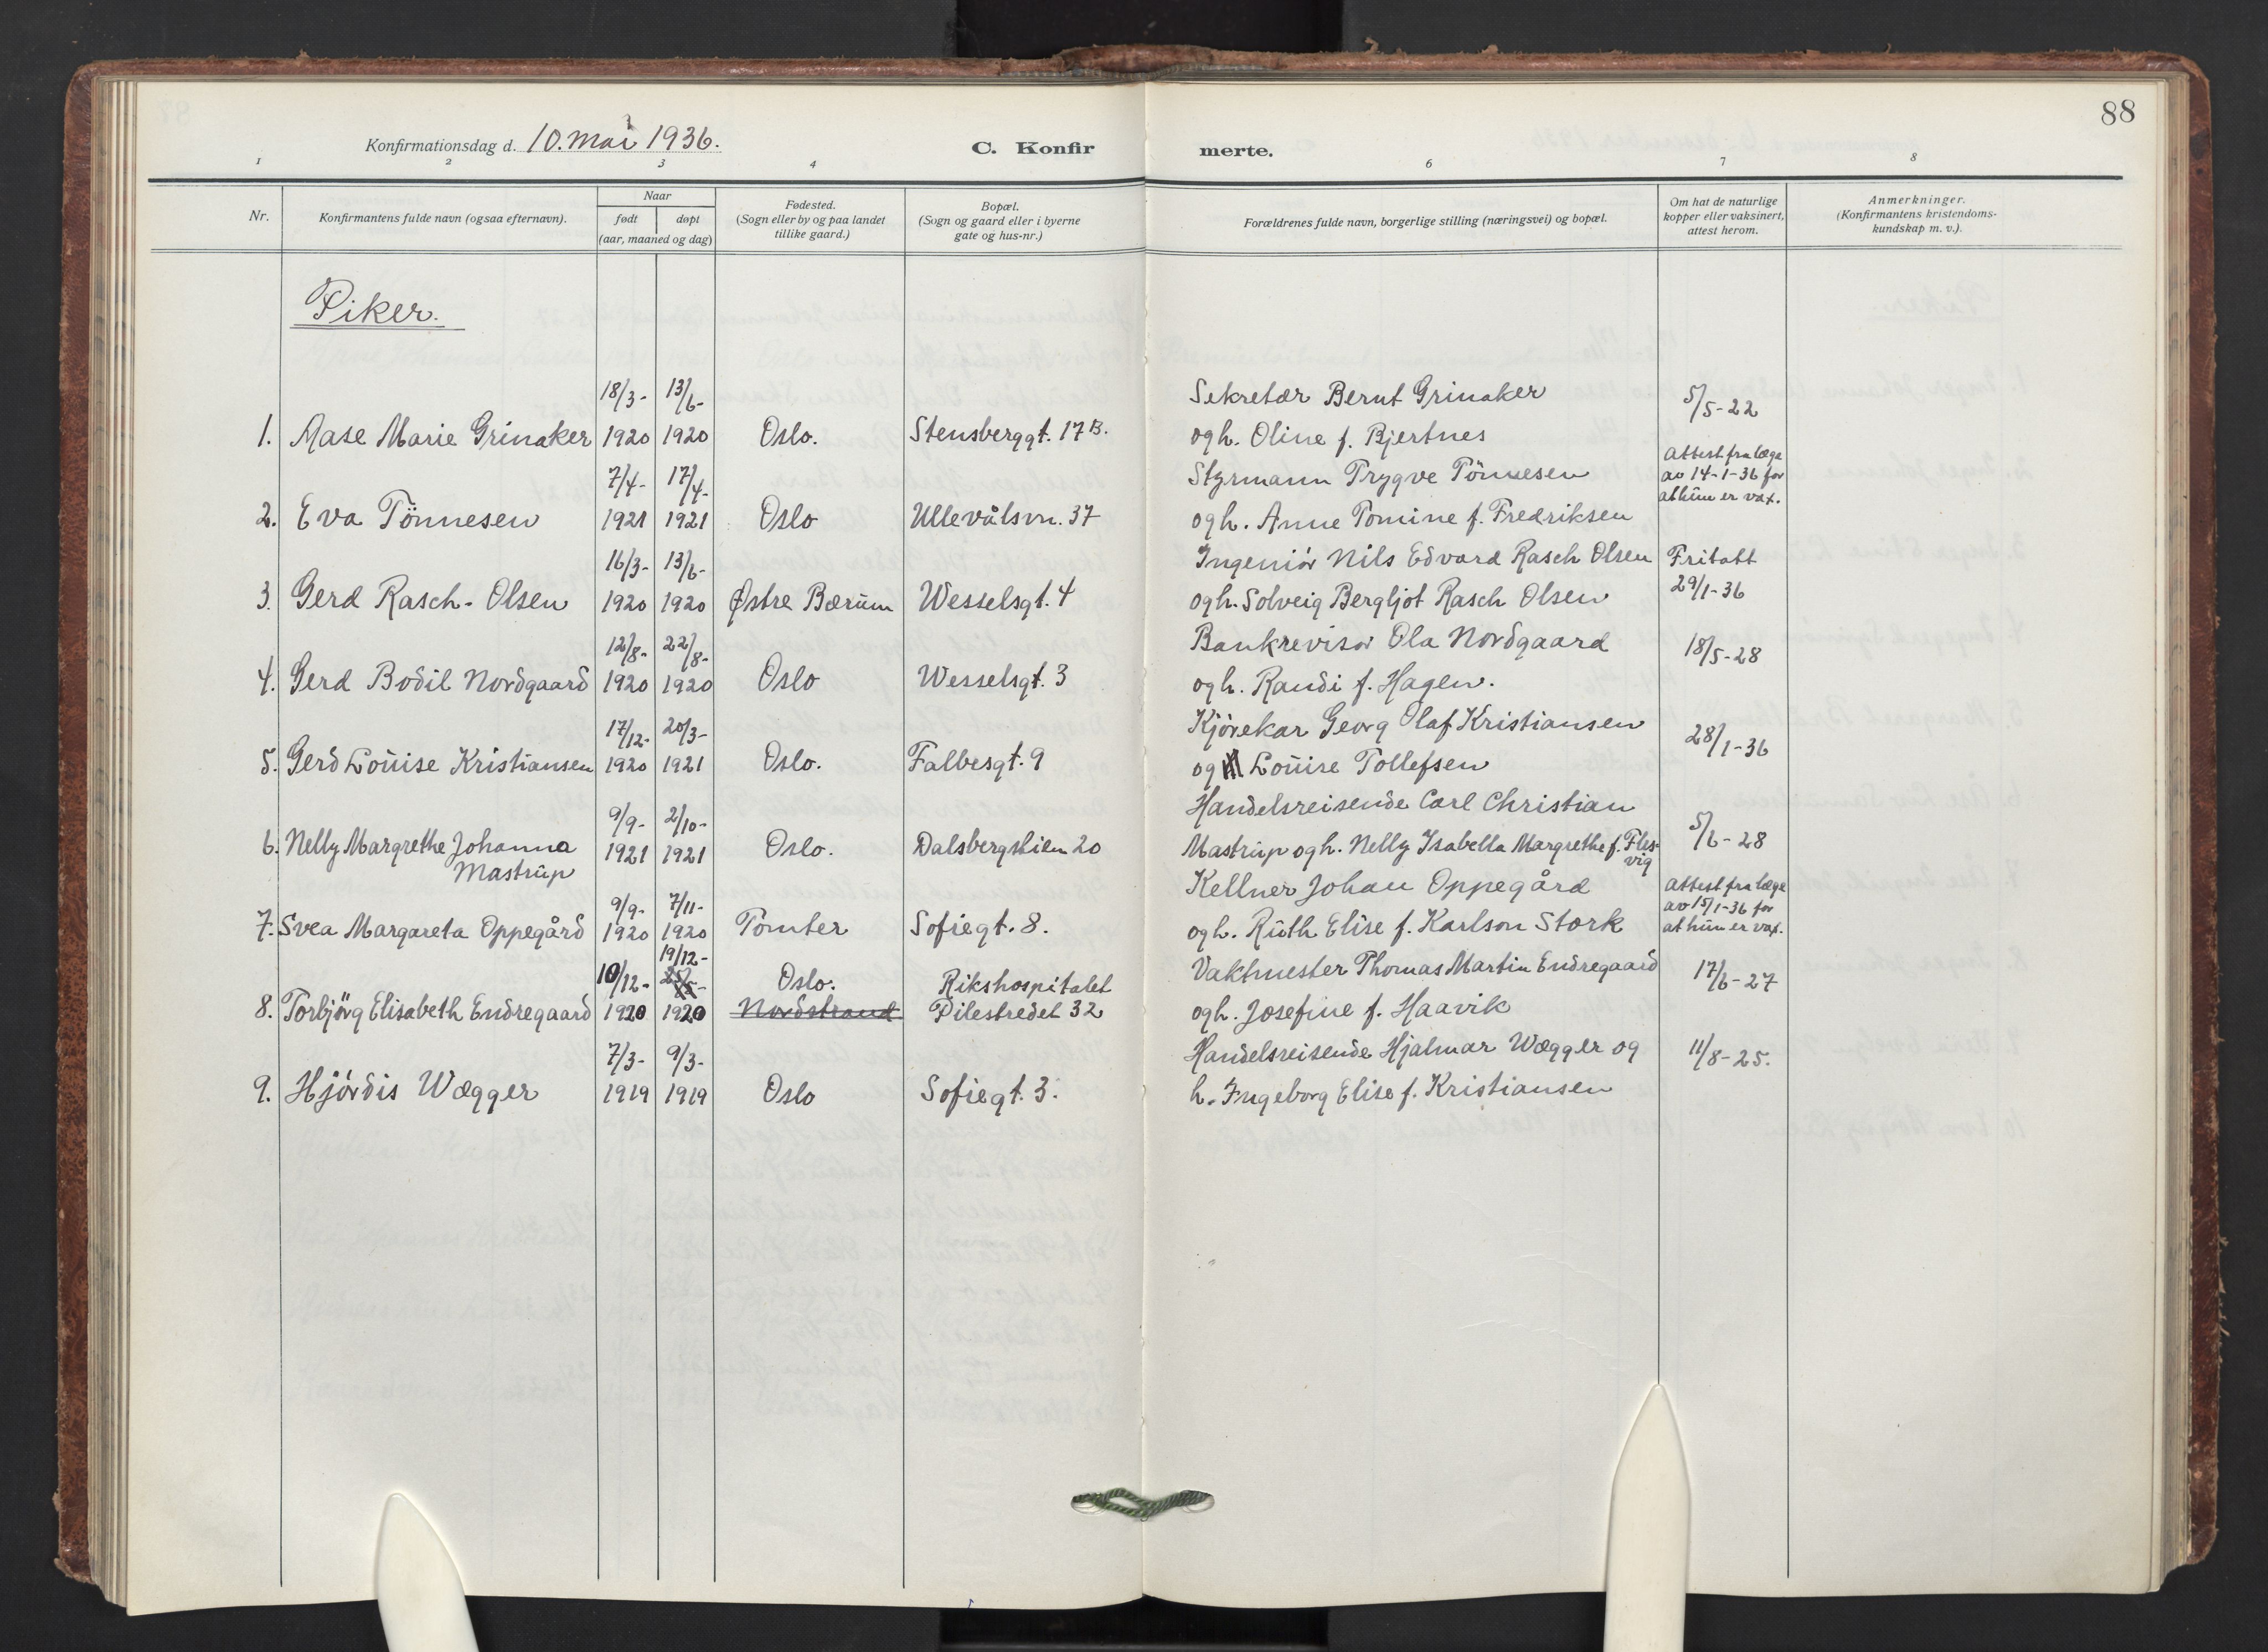 88
Konfirmationsdag d. 10. Mai 1936.
C. Konfir
merte.
1 2 3 4 6 7 8
Nr.
Konfirmantens fulde navn (ogsaa efternavn).
Naar
født døpt
(aar, maaned og dag)
Fødested.
(Sogn eller by og paa landet
tillike gaard.)
Bopæl.
(Sogn og gaard eller i byerne
gate og hus-nr.)
Forældrenes fulde navn, borgerlige stilling (næringsvei) og bopæl.
Om hat de naturlige
kopper eller vaksinert,
attest herom.
Anmerkninger.
(Konfirmantens kristendoms-
kundskap m. v.).
Piker.
18/3- 13/6- Sekretær Bernt Grinaker 5/5-22
1. Aase Marie Grinaker 1920 1920 Oslo. Stensberggt. 17B. og h. Oline f. Bjertnes
7/4- 17/4- Styrmann Trygve Tönnesen
Attest fra læge
av 14-1-36 for
at hun er vax.
2. Eva Tönnesen 1921 1921 Oslo Ullevålsvn. 37 og h. Anne Tomine f. Fredriksen
16/3- 13/6- Ingeniör Nils Edvard Rasch Olsen Fritatt
3. Gerd Rasch-Olsen 1920 1920 Østre Bærum Wesselsgt. 4 og h. Solveig Bergljot Rasch Olsen 29/1-36
12/8- 22/8- Bankrevisor Ola Nordgaard 18/5-28
4. Gerd Bodil Nordgaard 1920 1920 Oslo Wesselsgt. 3 og h. Randi f. Hagen.
17/12- 20/3- Kjörekar Georg Olaf Kristiansen 28/1-36
5. Gerd Louise Kristiansen 1920 1921 Oslo. Falbesgt. 9 og Louise Tollefsen
9/9- 2/10- Handelsreisende Carl Christian
6. Nelly Margrethe Johanna 1921 1921 Oslo. Dalsbergstien 20 Mastrup og h. Nelly Isabella Margrethe f. Fles- 5/6-28
Mastrup vig
9/9- 7/11- Kellner Johan Oppegård
Attest fra læge
av 15/1-36 for
at hun er vax.
7. Svea Margareta Oppegård 1920 1920 Tomter Sofiegt. 8. og h. Ruth Elise f. Karlson Stork
19/12-
10/12- 25/5- Oslo. Rikshospitalet Vaktmester Thomas Martin Endregaard 17/6-27
8. Torbjörg Elisabeth Endregaard 1920 1920 Nordstrand Pilestredet 32 og h. Josefine f. Haavik
7/3- 9/3- Handelsreisende Hjalmar Wægger og 11/8-25.
9. Hjördis Wægger 1919 1919 Oslo Sofiegt. 3. h. Ingeborg Elise f. Kristiansen